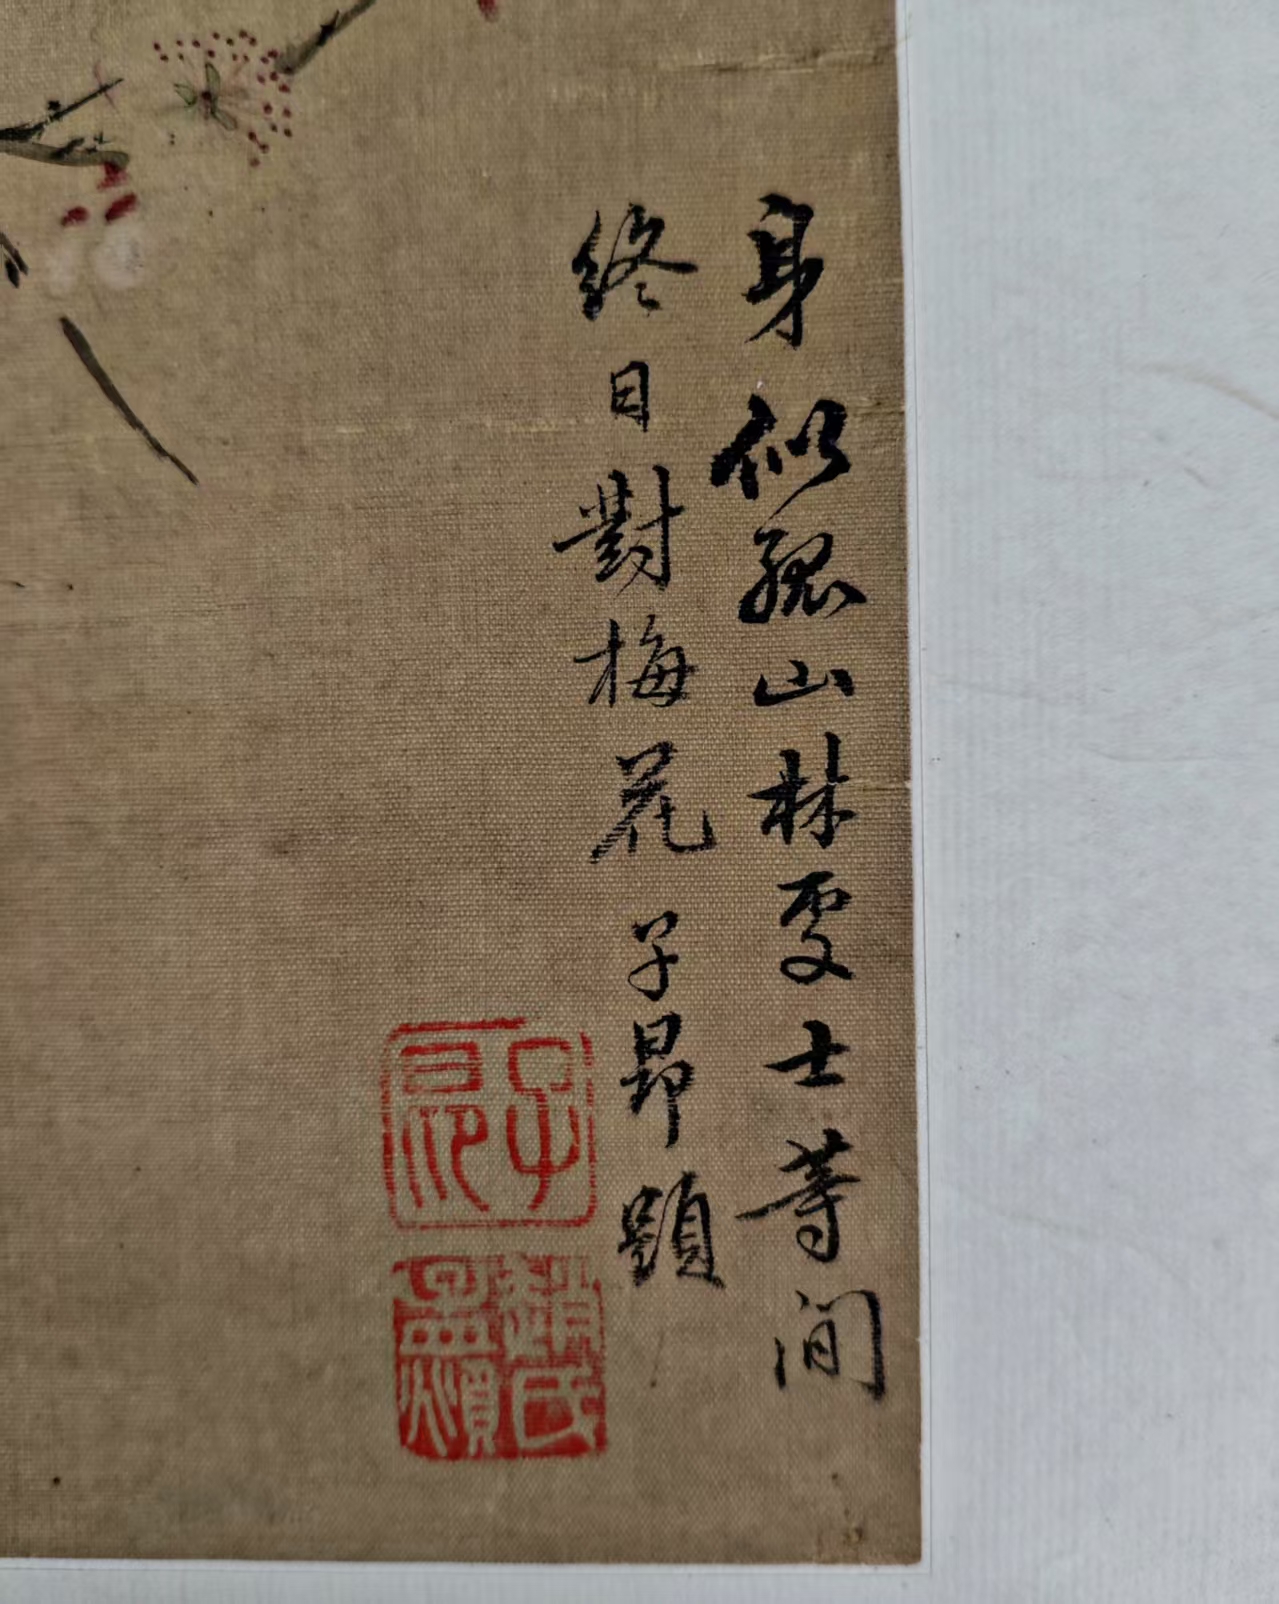 身似孤山林處士等间
終日對梅花子昂題
子昂
趙氏孟頫